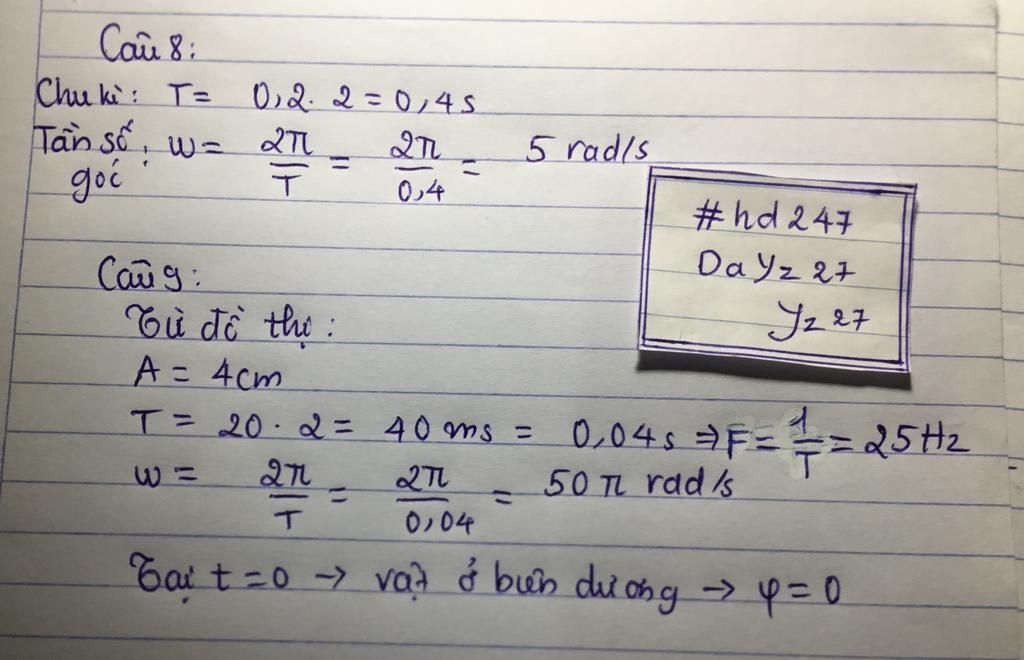 Câu 8:
Chu kì: T = 0,2 . 2 = 0,4 s
Tần số góc: w = 2π/T = 2π/0,4 = 5 rad/s
#hd247
DaYz27
Yz27
Câu 9:
Từ đồ thị:
A = 4cm
T = 20 . 2 = 40 ms = 0,04s ⇒ F = 1/T = 25 Hz
w = 2π/T = 2π/0,04 = 50π rad/s
Tại t = 0 → vật ở biên dương → φ = 0